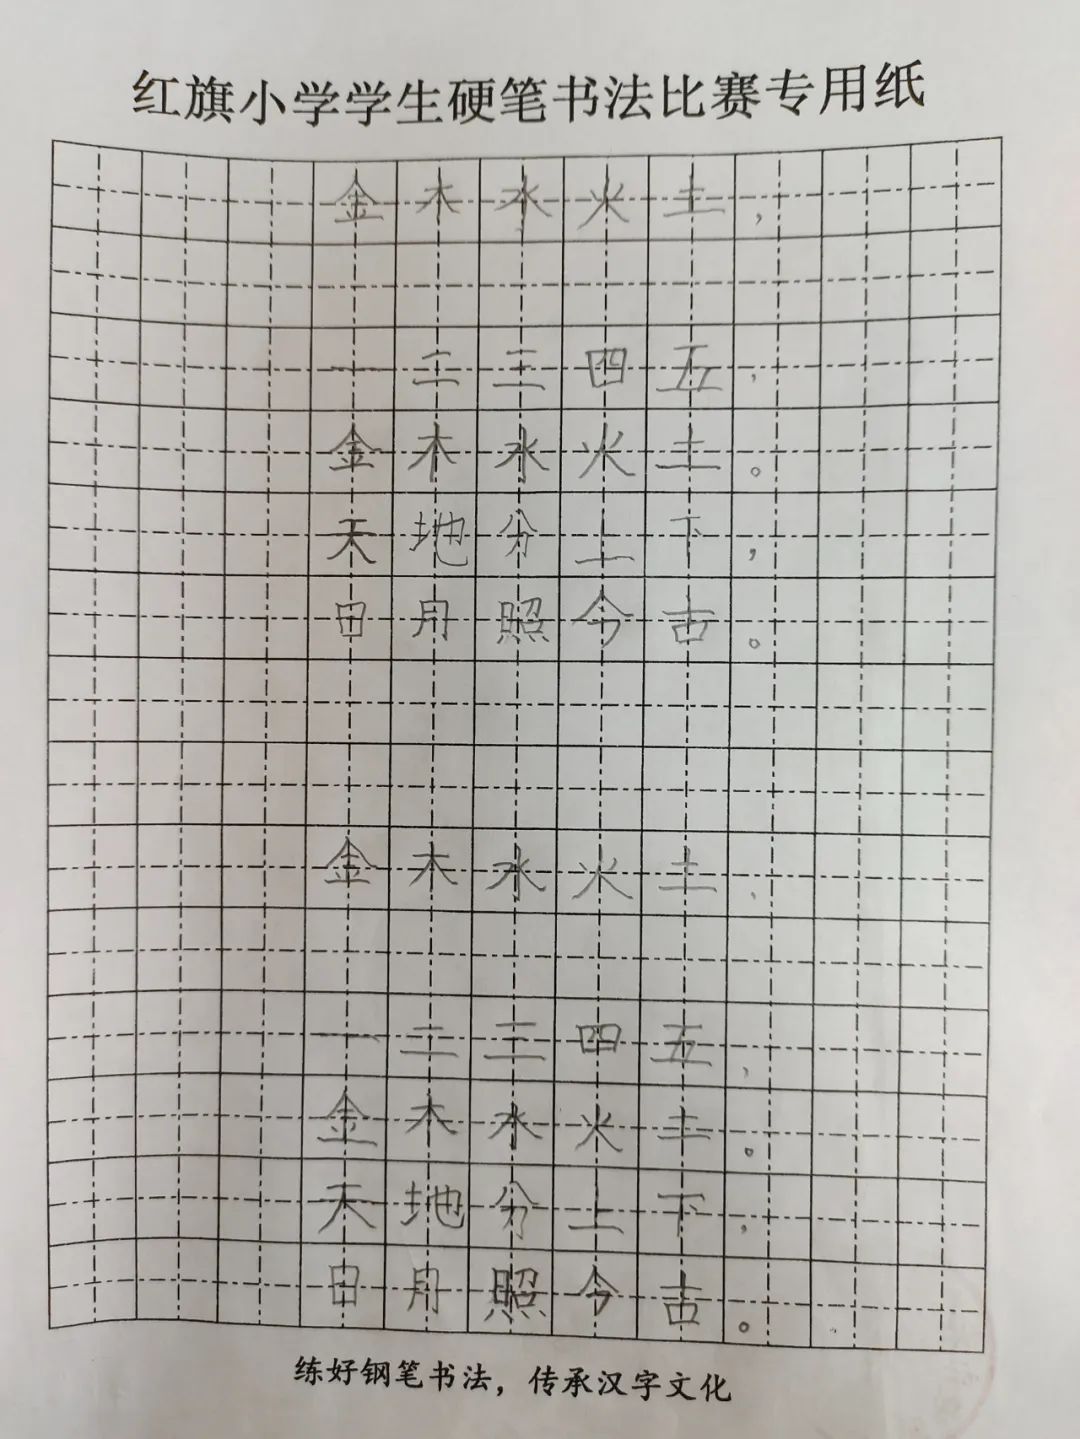 红旗小学学生硬笔书法比赛专用纸
金木水火土，
一二三四五，
金木水火土。
天地分上下，
日月照今古。
金木水火土、
一二三四五、
金木水火土。
天地分上下，
日月照今古。
练好钢笔书法，传承汉字文化